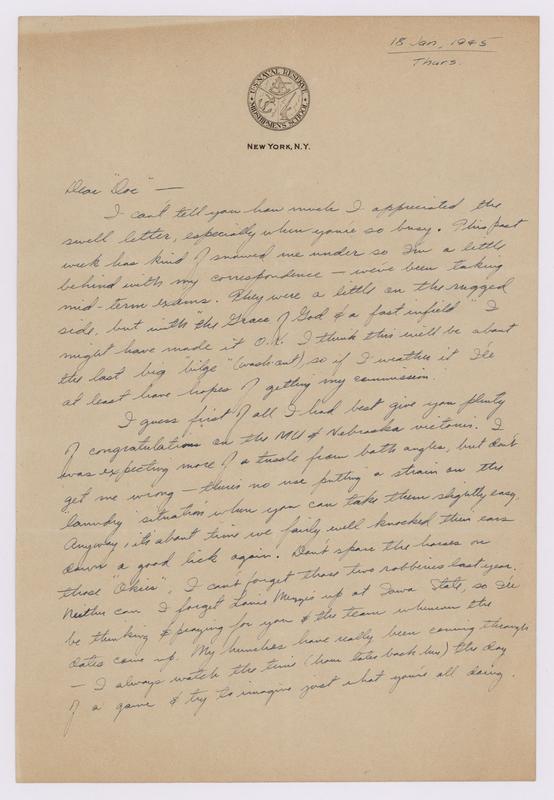 18 Jan, 1945
Thurs.
U.S. NAVAL RESERVE
MIDSHIPMEN'S SCHOOL
NEW YORK, N.Y.
Dear "Doc" —
I can't tell you how much I appreciated the
swell letter, especially when you're so busy. This past
week has kind of snowed me under so I'm a little
behind with my correspondence — we've been taking
mid-term exams. They were a little on the rugged
side, but with "the Grace of God & a fast infield" I
might have made it O.K. I think this will be about
the last big "bilge" (wash-out) so if I weather it I'll
at least have hopes of getting my commission.
I guess first of all I had best give you plenty
of congratulations on the MU & Nebraska victories. I
was expecting more of a tussle from both angles, but don't
get me wrong — there's no use putting a strain on the
laundry situation when you can take them slightly easy.
Anyway, it's about time we fairly well knocked their ears
down a good lick again. Don't spare the horses on
those "Okies", I can't forget those two robberies last year.
Neither can I forget Louie up at Iowa State, so I'll
be thinking & praying for you & the team whenever the
dates come up. My hunches have really been coming through
— I always watch the time (hour later back here) the day
of a game & try to imagine just what you're all doing.